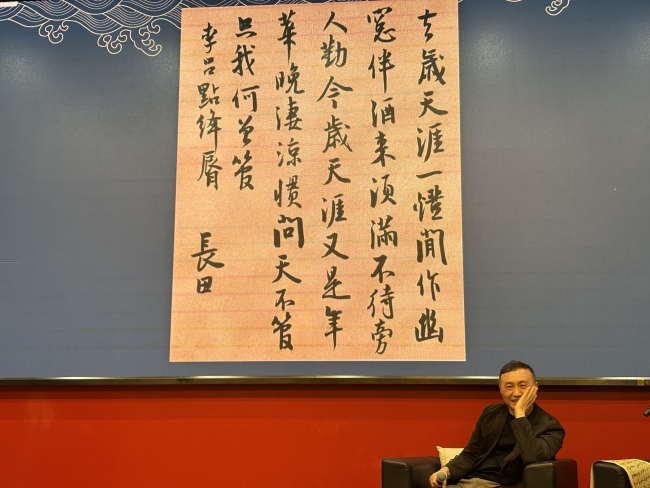 去歲天涯一燈閒作幽
窓伴酒来須滿不待旁
人勸今歲天涯又是年
華晚淒涼慣問天不管
只我何曾管
李呂點絳脣
長田